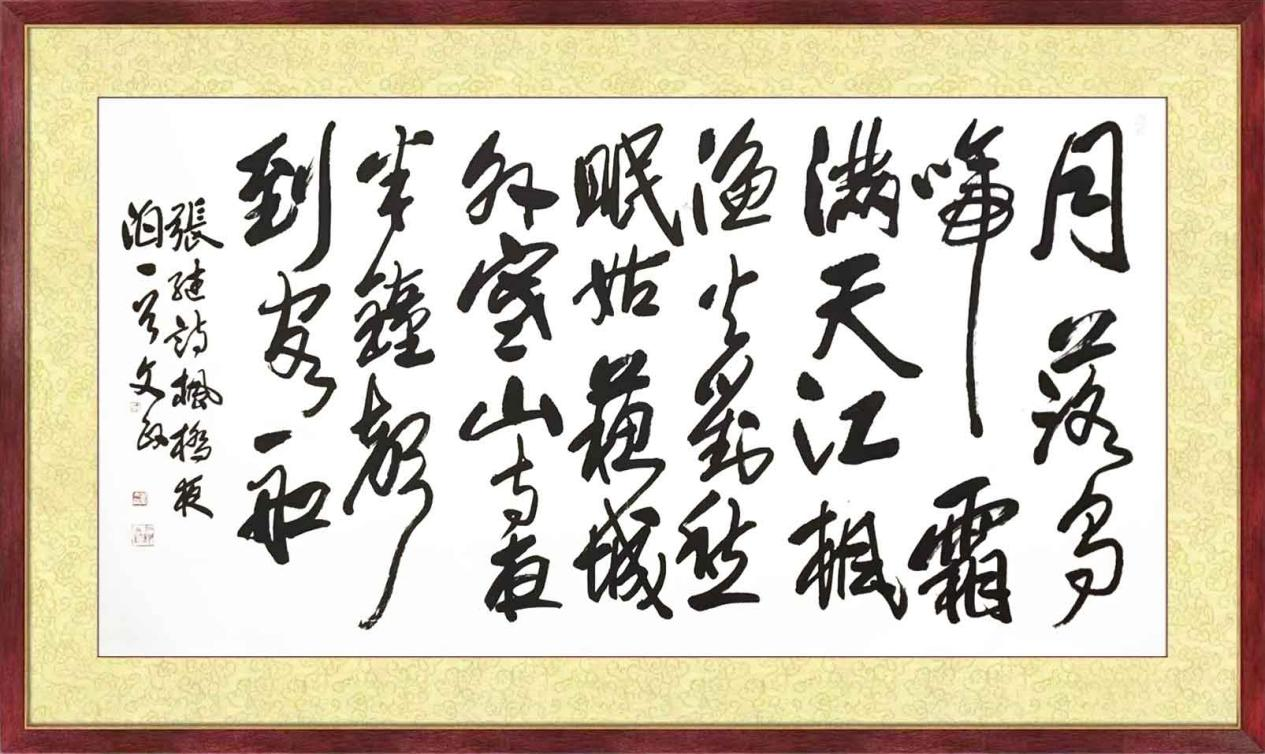 月落烏
啼霜
滿天江楓
漁火對愁
眠姑蘇城
外寒山寺夜
半鐘聲
到客船
張継詩楓橋夜
泊一首文